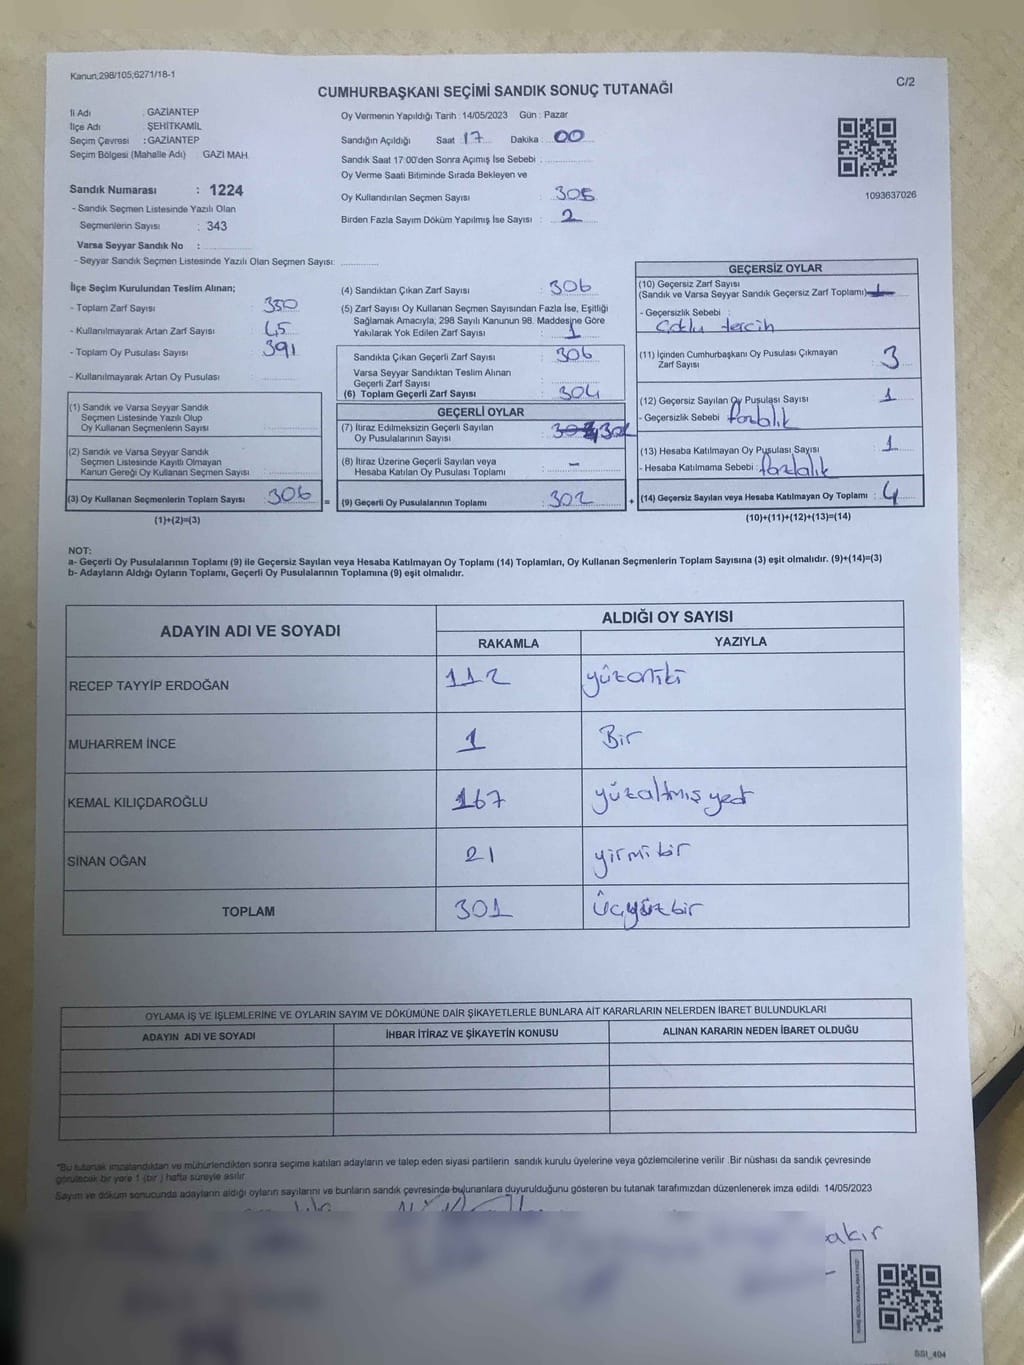 Kanun,298/105,6271/18-1
C/2
CUMHURBAŞKANI SEÇİMİ SANDIK SONUÇ TUTANAĞI
İli Adı : GAZİANTEP
İlçe Adı : ŞEHİTKAMİL
Seçim Çevresi : GAZİANTEP
Seçim Bölgesi (Mahalle Adı) GAZİ MAH.
Sandık Numarası : 1224
- Sandık Seçmen Listesinde Yazılı Olan
Seçmenlerin Sayısı : 343
Varsa Seyyar Sandık No :
- Seyyar Sandık Seçmen Listesinde Yazılı Olan Seçmen Sayısı:
Oy Vermenin Yapıldığı Tarih : 14/05/2023 Gün : Pazar
Sandığın Açıldığı Saat : 17 Dakika : 00
Sandık Saat 17:00'den Sonra Açımış İse Sebebi :
Oy Verme Saati Bitiminde Sırada Bekleyen ve
Oy Kullandırılan Seçmen Sayısı : 305
Birden Fazla Sayım Döküm Yapılmış İse Sayısı : 2
1093637026
İlçe Seçim Kurulundan Teslim Alınan;
- Toplam Zarf Sayısı : 350
- Kullanılmayarak Artan Zarf Sayısı : 45
- Toplam Oy Pusulası Sayısı : 391
- Kullanılmayarak Artan Oy Pusulası :
(1) Sandık ve Varsa Seyyar Sandık
Seçmen Listesinde Yazılı Olup
Oy Kullanan Seçmenlerin Sayısı :
(2) Sandık ve Varsa Seyyar Sandık
Seçmen Listesinde Kayıtlı Olmayan
Kanun Gereği Oy Kullanan Seçmen Sayısı :
(3) Oy Kullanan Seçmenlerin Toplam Sayısı : 306
(1)+(2)=(3)
(4) Sandıktan Çıkan Zarf Sayısı : 306
(5) Zarf Sayısı Oy Kullanan Seçmen Sayısından Fazla İse, Eşitliği
Sağlamak Amacıyla, 298 Sayılı Kanunun 98. Maddesine Göre
Yakılarak Yok Edilen Zarf Sayısı : 1
Sandıkta Çıkan Geçerli Zarf Sayısı : 306
Varsa Seyyar Sandıktan Teslim Alınan
Geçerli Zarf Sayısı :
(6) Toplam Geçerli Zarf Sayısı : 304
GEÇERLİ OYLAR
(7) İtiraz Edilmeksizin Geçerli Sayılan
Oy Pusulalarının Sayısı :
(8) İtiraz Üzerine Geçerli Sayılan veya
Hesaba Katılan Oy Pusulası Toplamı : -
= (9) Geçerli Oy Pusulalarının Toplamı : 302
GEÇERSİZ OYLAR
(10) Geçersiz Zarf Sayısı
(Sandık ve Varsa Seyyar Sandık Geçersiz Zarf Toplamı)
- Geçersizlik Sebebi :
Çoklu tercih
(11) İçinden Cumhurbaşkanı Oy Pusulası Çıkmayan
Zarf Sayısı : 3
(12) Geçersiz Sayılan Oy Pusulası Sayısı : 1
- Geçersizlik Sebebi : fazlalık
(13) Hesaba Katılmayan Oy Pusulası Sayısı : 1
- Hesaba Katılmama Sebebi : fazlalık
+ (14) Geçersiz Sayılan veya Hesaba Katılmayan Oy Toplamı : 4
(10)+(11)+(12)+(13)=(14)
NOT:
a- Geçerli Oy Pusulalarının Toplamı (9) ile Geçersiz Sayılan veya Hesaba Katılmayan Oy Toplamı (14) Toplamları, Oy Kullanan Seçmenlerin Toplam Sayısına (3) eşit olmalıdır. (9)+(14)=(3)
b- Adayların Aldığı Oyların Toplamı, Geçerli Oy Pusulalarının Toplamına (9) eşit olmalıdır.
ADAYIN ADI VE SOYADI
ALDIĞI OY SAYISI
RAKAMLA YAZIYLA
RECEP TAYYİP ERDOĞAN 112 yüzoniki
MUHARREM İNCE 1 Bir
KEMAL KILIÇDAROĞLU 167 yüzaltmış yedi
SİNAN OĞAN 21 yirmi bir
TOPLAM 301 Üçyüzbir
OYLAMA İŞ VE İŞLEMLERİNE VE OYLARIN SAYIM VE DÖKÜMÜNE DAİR ŞİKAYETLERLE BUNLARA AİT KARARLARIN NELERDEN İBARET BULUNDUKLARI
ADAYIN ADI VE SOYADI İHBAR İTİRAZ VE ŞİKAYETİN KONUSU ALINAN KARARIN NEDEN İBARET OLDUĞU
*Bu tutanak imzalandıktan ve mühürlendikten sonra seçime katılan adayların ve talep eden siyasi partilerin sandık kurulu üyelerine veya gözlemcilerine verilir .Bir nüshası da sandık çevresinde
görülecek bir yere 1 (bir ) hafta süreyle asılır.
Sayım ve döküm sonucunda adayların aldığı oyların sayılarını ve bunların sandık çevresinde bulunanlara duyurulduğunu gösteren bu tutanak tarafımızdan düzenlenerek imza edildi. 14/05/2023
akır
SSI_404